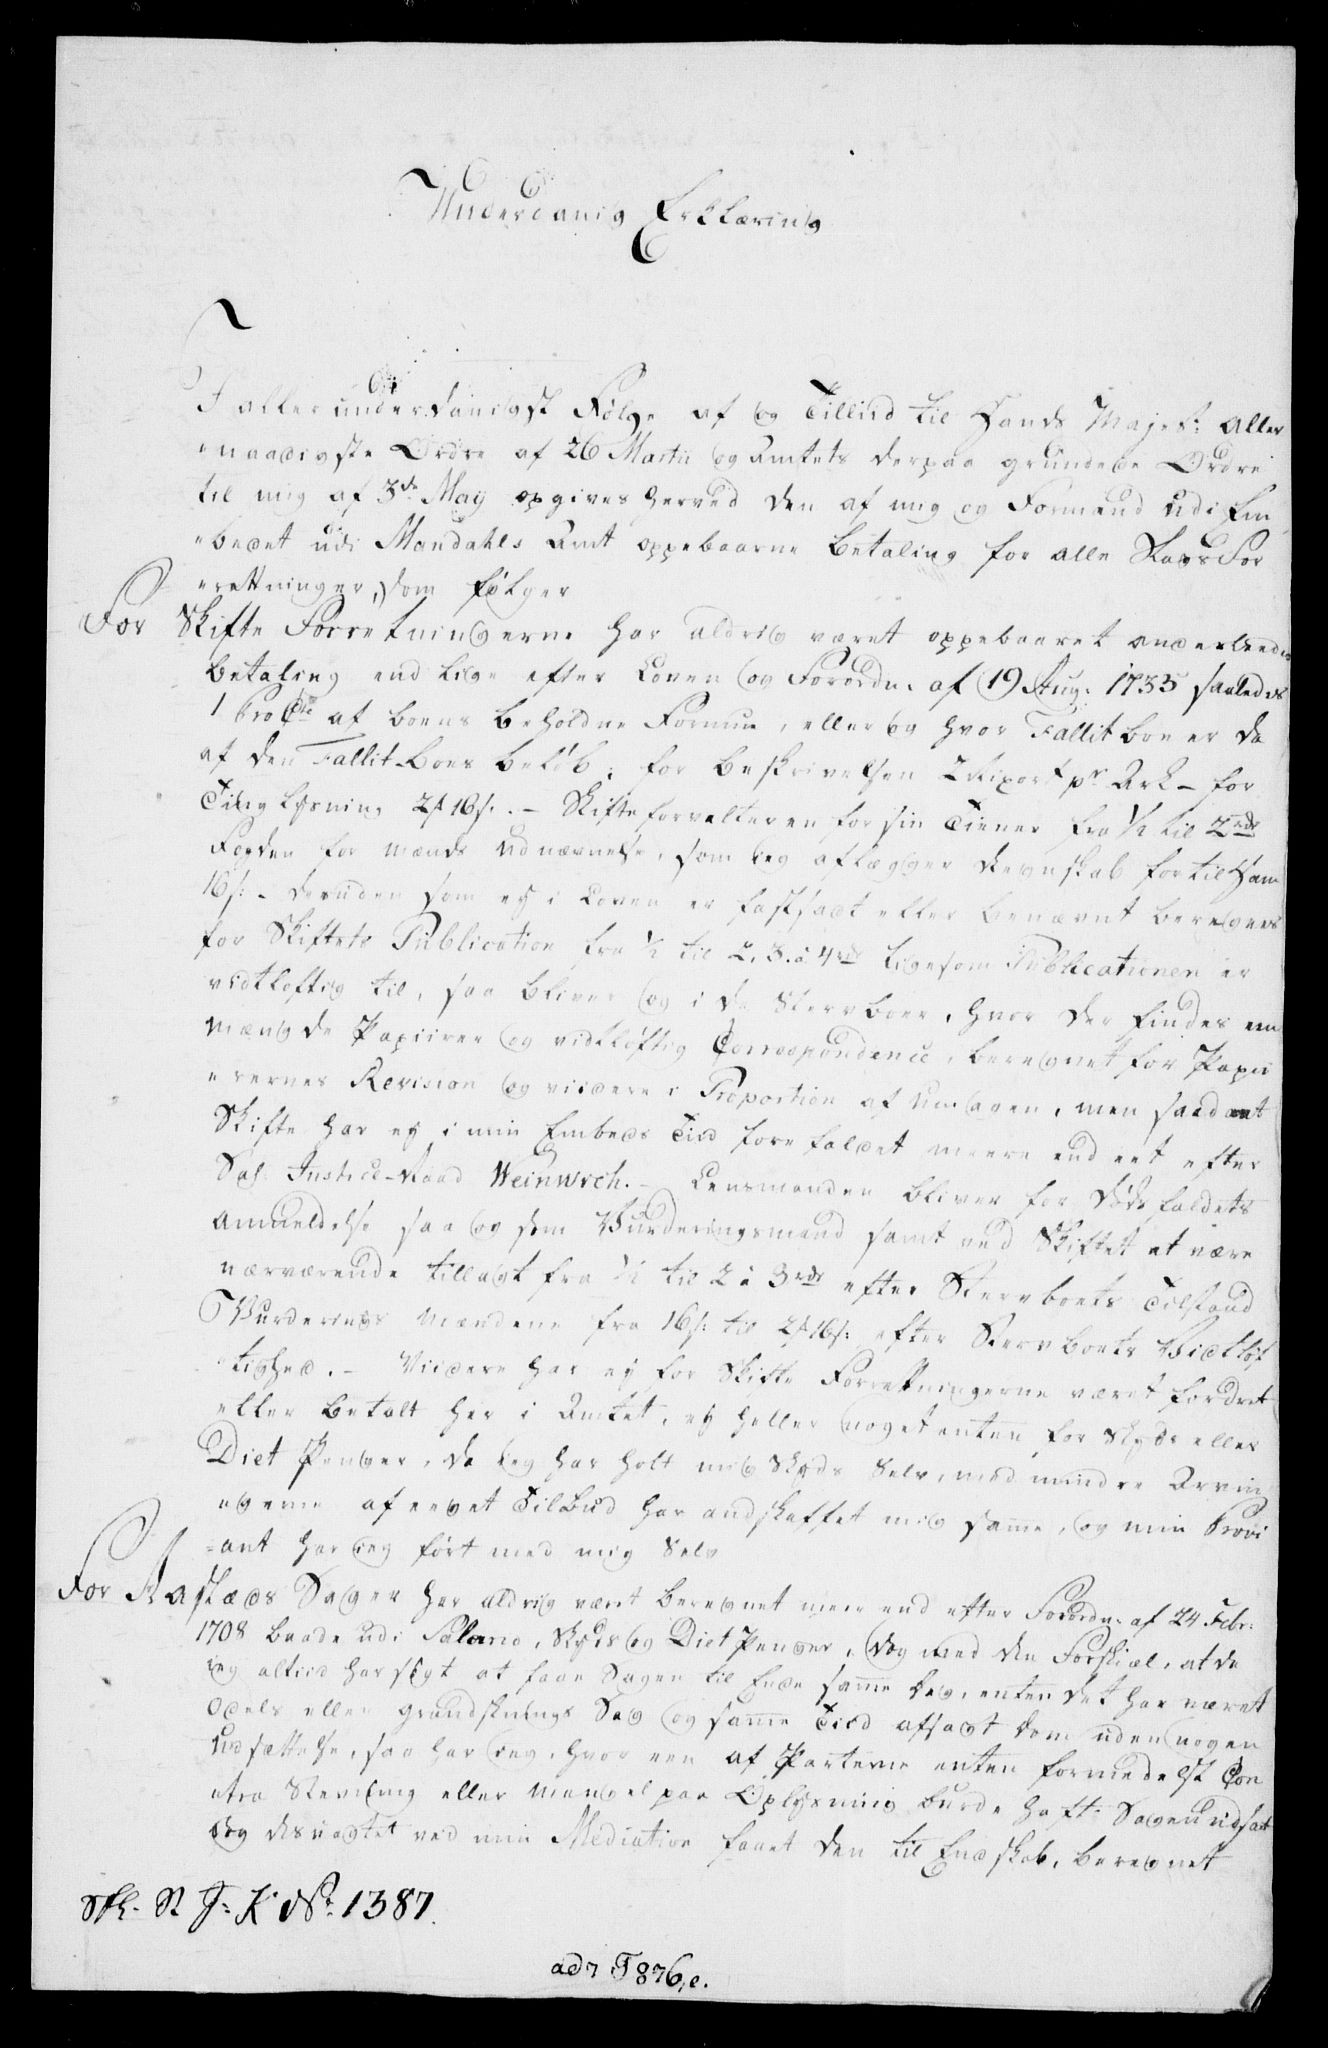 Underdanig Erklæring
I allerunderdanigst Følge af og Tillid til Hands Majes: Aller
naadigste Ordre af 26 Martii og Amtets derpaa grundede Ordre
til mig af 3de May opgives herved den af mig og Formand udi Em
bedet udi Mandahls Amt oppebaarne Betaling for alle Slags For
rettninger, som følger
For Skifte Forretningerne har aldrig været oppebaaret anderleedes
betaling end lige efter Loven og Forordn. af 19 Aug. 1735 saaledes
1 ProCto af boens beholdne Formue, eller og hvor Fallit boe er da
af den Fallit Boes beløb; for beskrivelsen 2 Rixort pr Ark - for
Ting lysning 2 16s. - Skifteforvalteren for sin Tiener fra ½ til 2rdr
Fogden for mænds udnævnelse, som jeg aflægger Regnskab for til Ham
16s. - desuden som ej i Loven er fastsadt eller benævnt beregnes
for Skiftets Publication fra ½ til 2, 3 a 4rdr ligesom Publicationen er
vidtløftig til, saa bliver og i de Stervboer, hvor der findes een
mængde Papiirer og vidtløftig Correspondence, beregnet for Papii
rernes Revision og viidere i Proportion af Umagen, men saadant
Skifte har ej i min Embeds Tiid forefaldet meere end eet efter
Sal. Justice-Raad Weinwich. - Lensmanden bliver for dødsfaldets
anmeldelse saa og som Vurderingsmand samt ved Skiftet at være
nærværende tillagt fra ½ til 2 a 3rdr efter Stervboets Tilstand
Vurderings Mændene fra 16s. til 2 16s. efter Stervboets Vidtløf
tighed. - Viidere har ej for Skifte Forrettningerne været fordret
eller betalt her i Amtet, ej heller noget enten for Skyds eller
Diet Penger, da jeg har holt mig Skyds Selv, med mindre Arvin
gerne af eeget Tilbud har andskaffet mig samme, og min Provi
ant har jeg ført med mig Selv
For Aastæds Sager har aldrig været beregnet mere end efter Forordn. af 24 Febr:
1708 baade udi Salario, Skyds og Diet Penger, dog med den Forskiæl, at da
jeg altiid har søgt at faae Sagen til Ende samme dag, enten det har været
Odels eller grundstnings Sag og samme Tiid afsagt dom uden nogen
udsættelse, saa har jeg, hvor een af Parterne enten formedelst Con
tra Stevning eller mangel paa Oplysning burde haft Sagen udsat
dog desuagtet ved min Mediation faaet den til Endskab, beregnet
No. 1387.
ad 7 T 876,e.